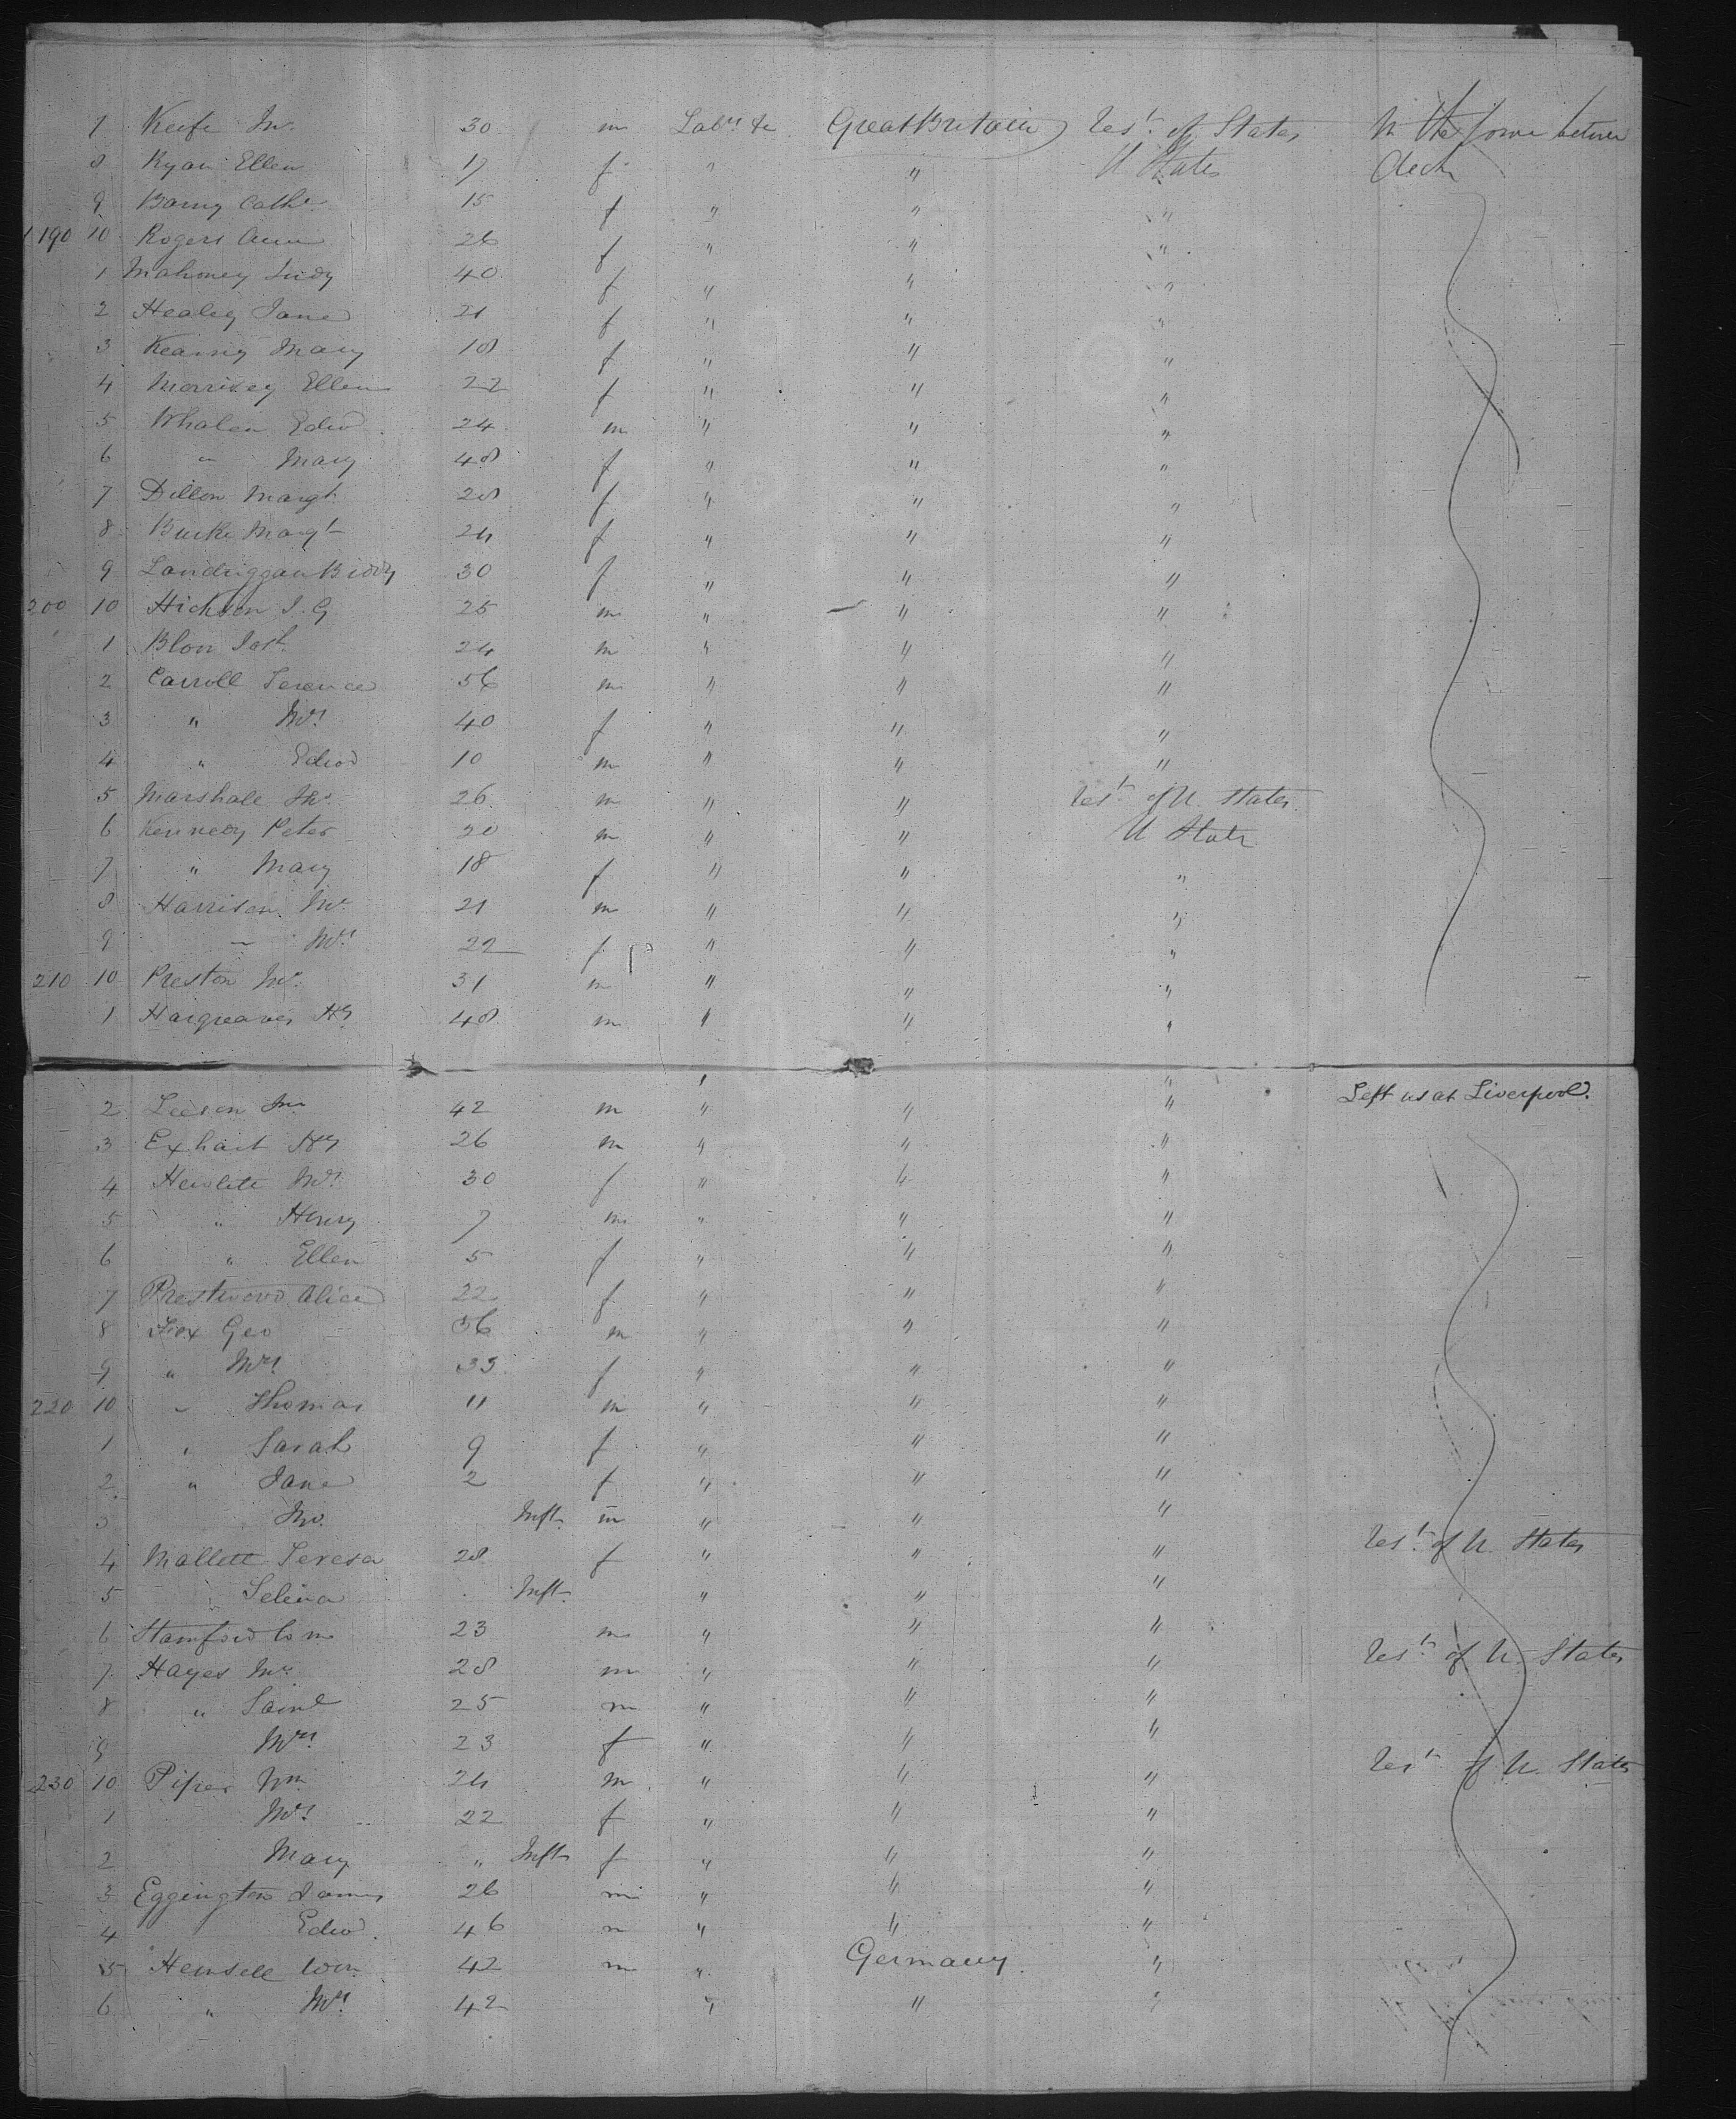 7 Keefe Jno. 30 m Labrs &c Great Britain Rest. of States In the fore between
8 Ryan Ellen 17 f " " U States deck
9 Barny Cathe 15 f " " "
190 10 Rogers Ann 26 f " " "
1 Mahoney Judy 40 f " " "
2 Healey Jane 21 f " " "
3 Kearny Mary 18 f " " "
4 Morrisey Ellen 22 f " " "
5 Whalen Edwd 24 m " " "
6 " Mary 48 f " " "
7 Dillon Margt 28 f " " "
8 Burke Margt 24 f " " "
9 Landriggan Biddy 30 f " " "
200 10 Hickson J. G 25 m " " "
1 Blon Josh 24 m " " "
2 Carroll Terence 56 m " " "
3 " Mrs 40 f " " "
4 " Edwd 10 m " " "
5 Marshall Jno. 26 m " " Rest. of U. States
6 Kennedy Peter 20 m " " U State
7 " Mary 18 f " " "
8 Harrison Mr 21 m " " "
9 " Mrs 22 f " " "
210 10 Preston Mr. 31 m " " "
1 Hargreaves Hy 48 m " " "
" "
Left us at Liverpool.
2 Leeson Jno 42 m " " "
3 Exhart Hy 26 m " " "
4 Hewlett Mrs 30 f " " "
5 " Henry 7 m " " "
6 " Ellen 5 f " " "
7 Prestwood Alice 22 f " " "
8 Fox Geo 36 m " " "
9 " Mrs 33 f " " "
220 10 " Thomas 11 m " " "
1 " Sarah 9 f " " "
2 " Jane 2 f " " "
3 Jno. Inft. m " " "
4 Mallett Teresa 28 f " " " Rest. of U. States
5 Selina Inft. " " "
6 Stamford Wm 23 m " " "
7 Hayes Mr. 28 m " " " Rest. of U. States
8 " Saml 25 m " " "
9 Mrs 23 f " " "
230 10 Piper Wm 24 m " " " Rest of U. States
1 Mrs 22 f " " "
2 Mary " Inft f " " "
3 Eggington James 26 m " " "
4 Edwd. 46 m " " "
5 Hensell Wm 42 m " Germany "
6 " Mrs 42 " " "